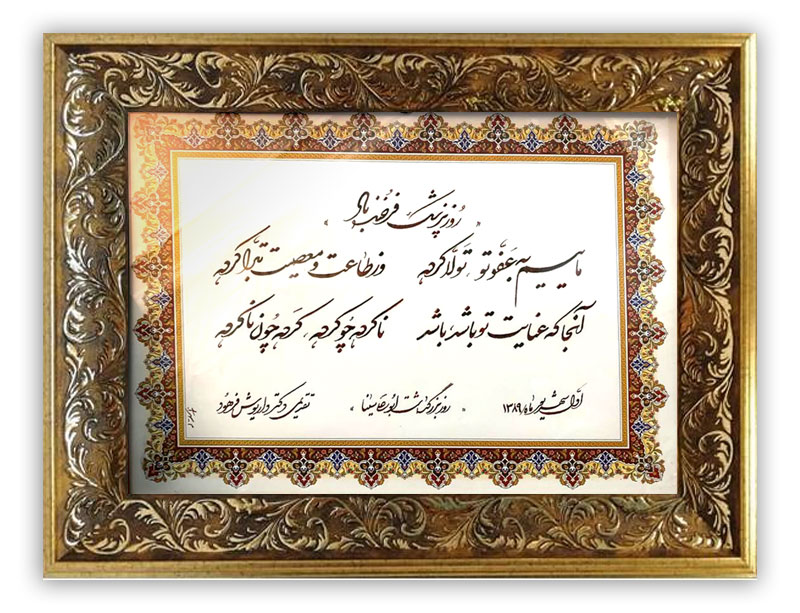 « روز پزشک فرخنده باد »
ماییم به عَفوِ تو تَولّا کرده وز طاعت و معصیت تبرّا کرده
آنجا که عنایت تو باشد، باشد ناکرده چُو کرده، کرده چُون ناکرده
اوّل شهریور ماه ۱۳۸۹ « روز بزرگداشت ابوعلی سینا » تقدیمی دکتر داریوش فرهود